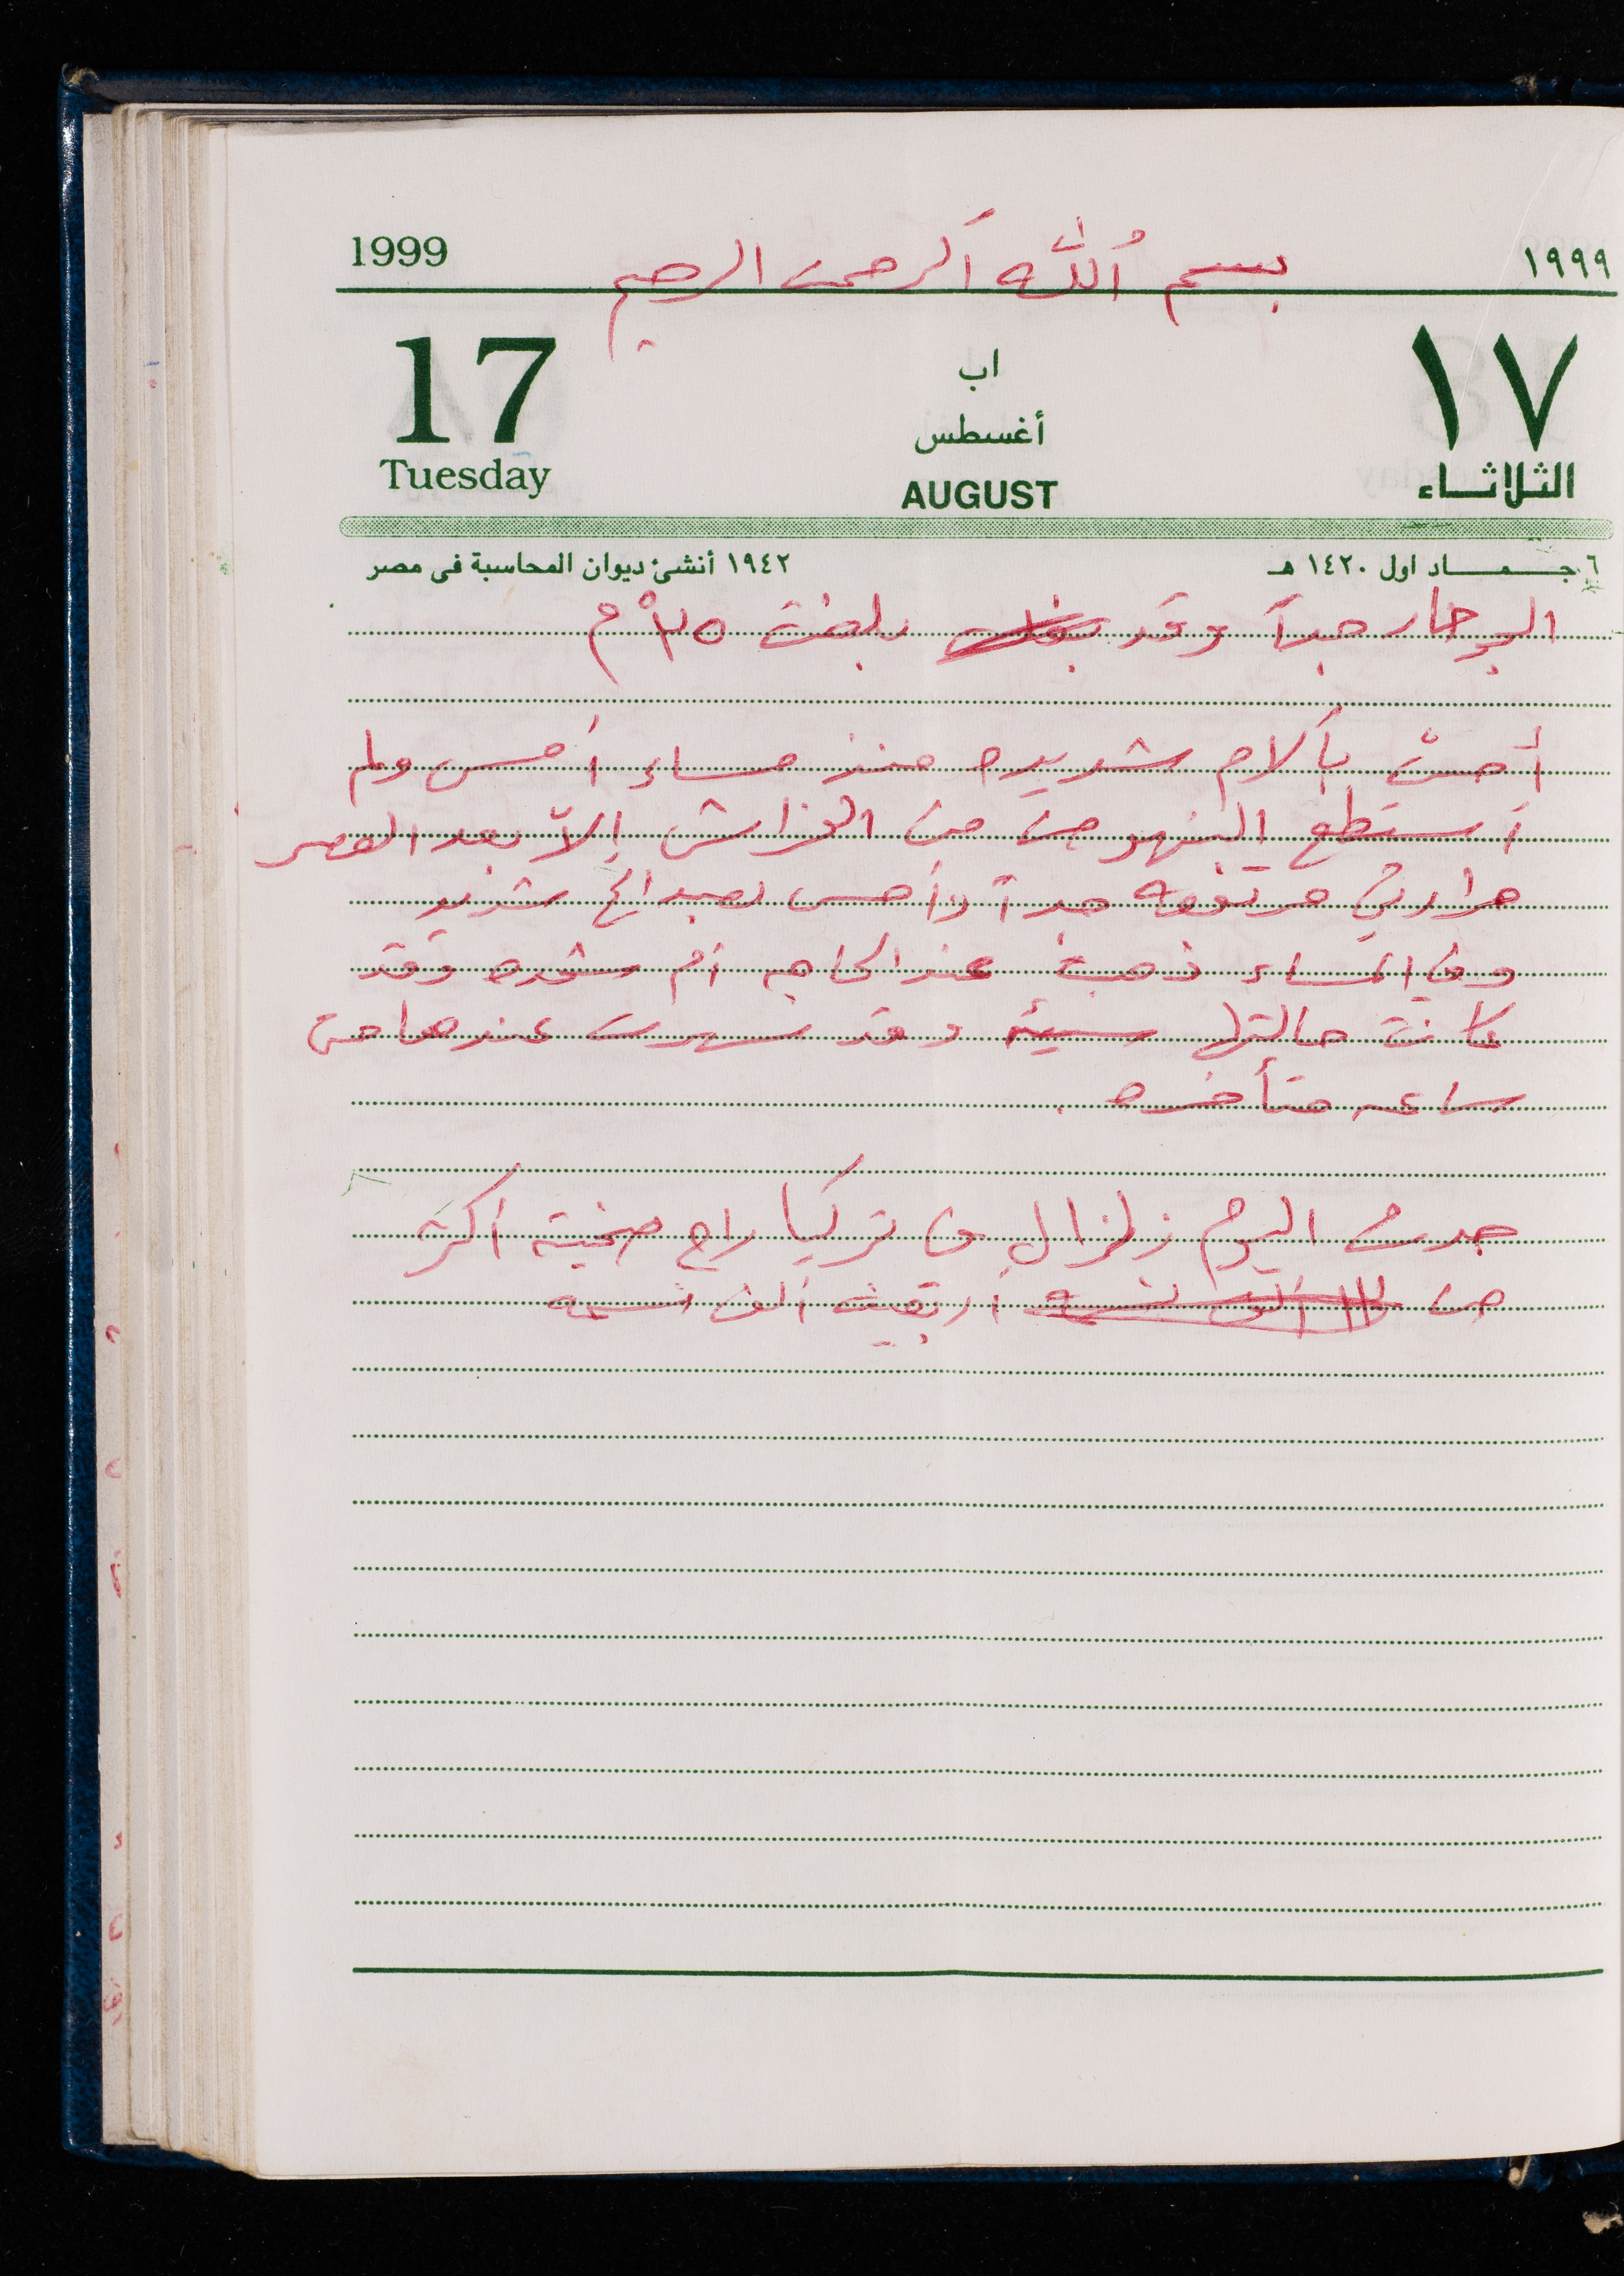 1999 بسم الله الرحمن الرحيم ١٩٩٩
17 اب ١٧
أغسطس
Tuesday AUGUST الثلاثاء
٦ جمـاد اول ١٤٢٠ هـ ١٩٤٢ أنشئ ديوان المحاسبة فى مصر
الجو حار جداً وقد بلغت ٣٥°م
أحسّ بآلام شديده منذ مساء أمس ولم
أستطع النهوض من الفراش إلاّ بعد العصر
حرارتي مرتفعه جداً وأحس بصداع شديد
وفي المساء ذهبت عند الحاجه أم رشده وقد
كانت حالتها سيئة وقد سهرت عندها حتى
ساعه متأخره .
حدث اليوم زلزال في تركيا راح ضحيته أكثر
من أربعين ألف نسمه